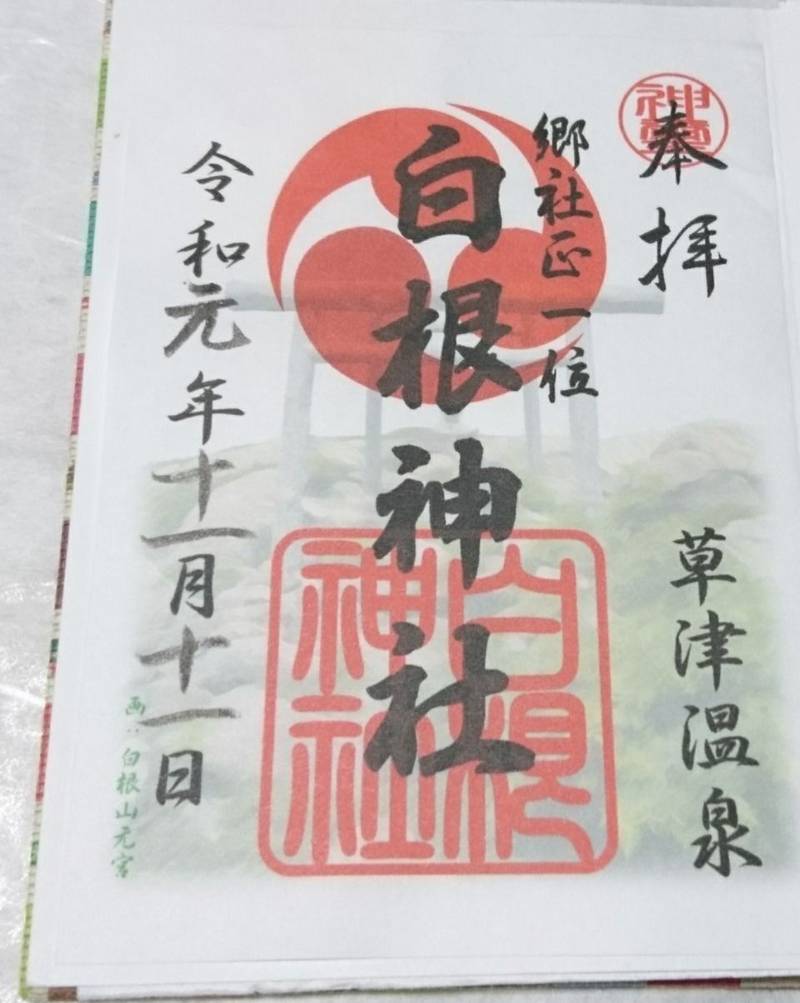 奉拝
草津温泉
郷社正一位
白根神社
白根神社
令和元年十一月十一日
画:白根山元宮